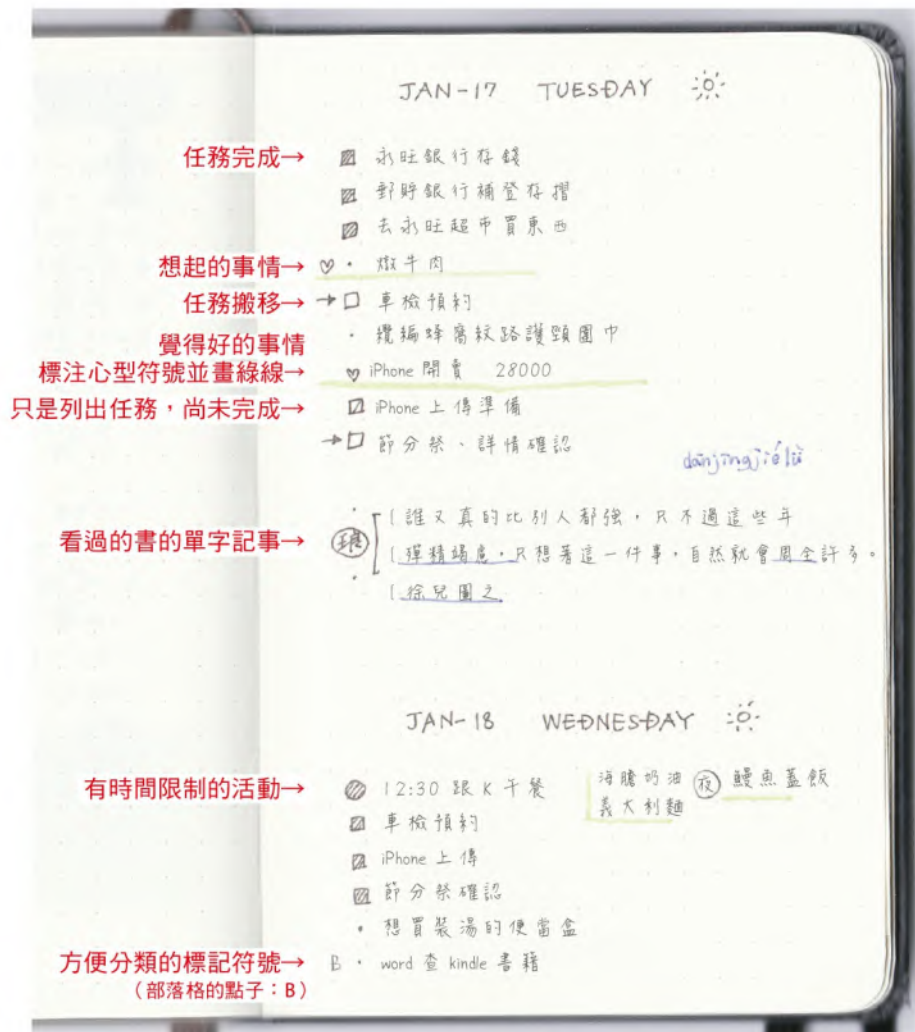 JAN-17 TUESDAY
任務完成→ 永旺銀行存錢
郵貯銀行補登存摺
去永旺超市買東西
想起的事情→ ♡・燉牛肉
任務搬移→ →□ 車檢預約
覺得好的事情 ・纜編蜂窩紋路護頸圍巾
標注心型符號並畫綠線→ ♡ iPhone 開賣 28000
只是列出任務，尚未完成→ iPhone 上傳準備
→□ 節分祭、詳情確認
dānjīngjiélǜ
誰又真的比別人都強，只不過這些年
看過的書的單字記事→ 殫精竭慮，只想著這一件事，自然就會周全許多。
徐兒圖之
JAN-18 WEDNESDAY
有時間限制的活動→ 12:30 跟 K 午餐 海膽奶油 夜 鰻魚蓋飯
車檢預約 義大利麵
iPhone 上傳
節分祭確認
・想買裝湯的便當盒
方便分類的標記符號→ B・word 查 kindle 書籍
（部落格的點子：B）